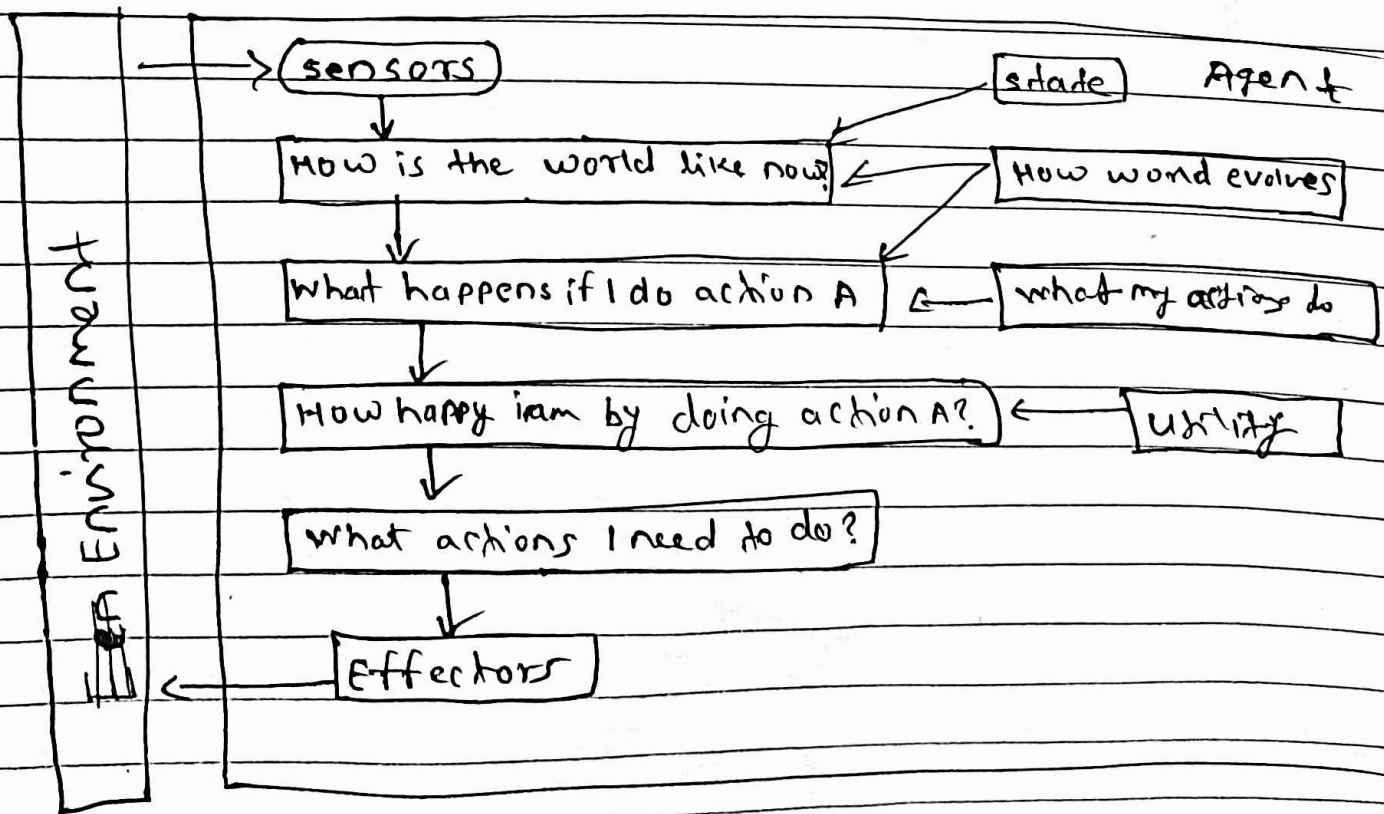 sensors
state
Agent
How is the world like now?
How world evolves
What happens if I do action A
what my actions do
How happy iam by doing action A?
Utility
What actions I need to do?
Effectors
Environment